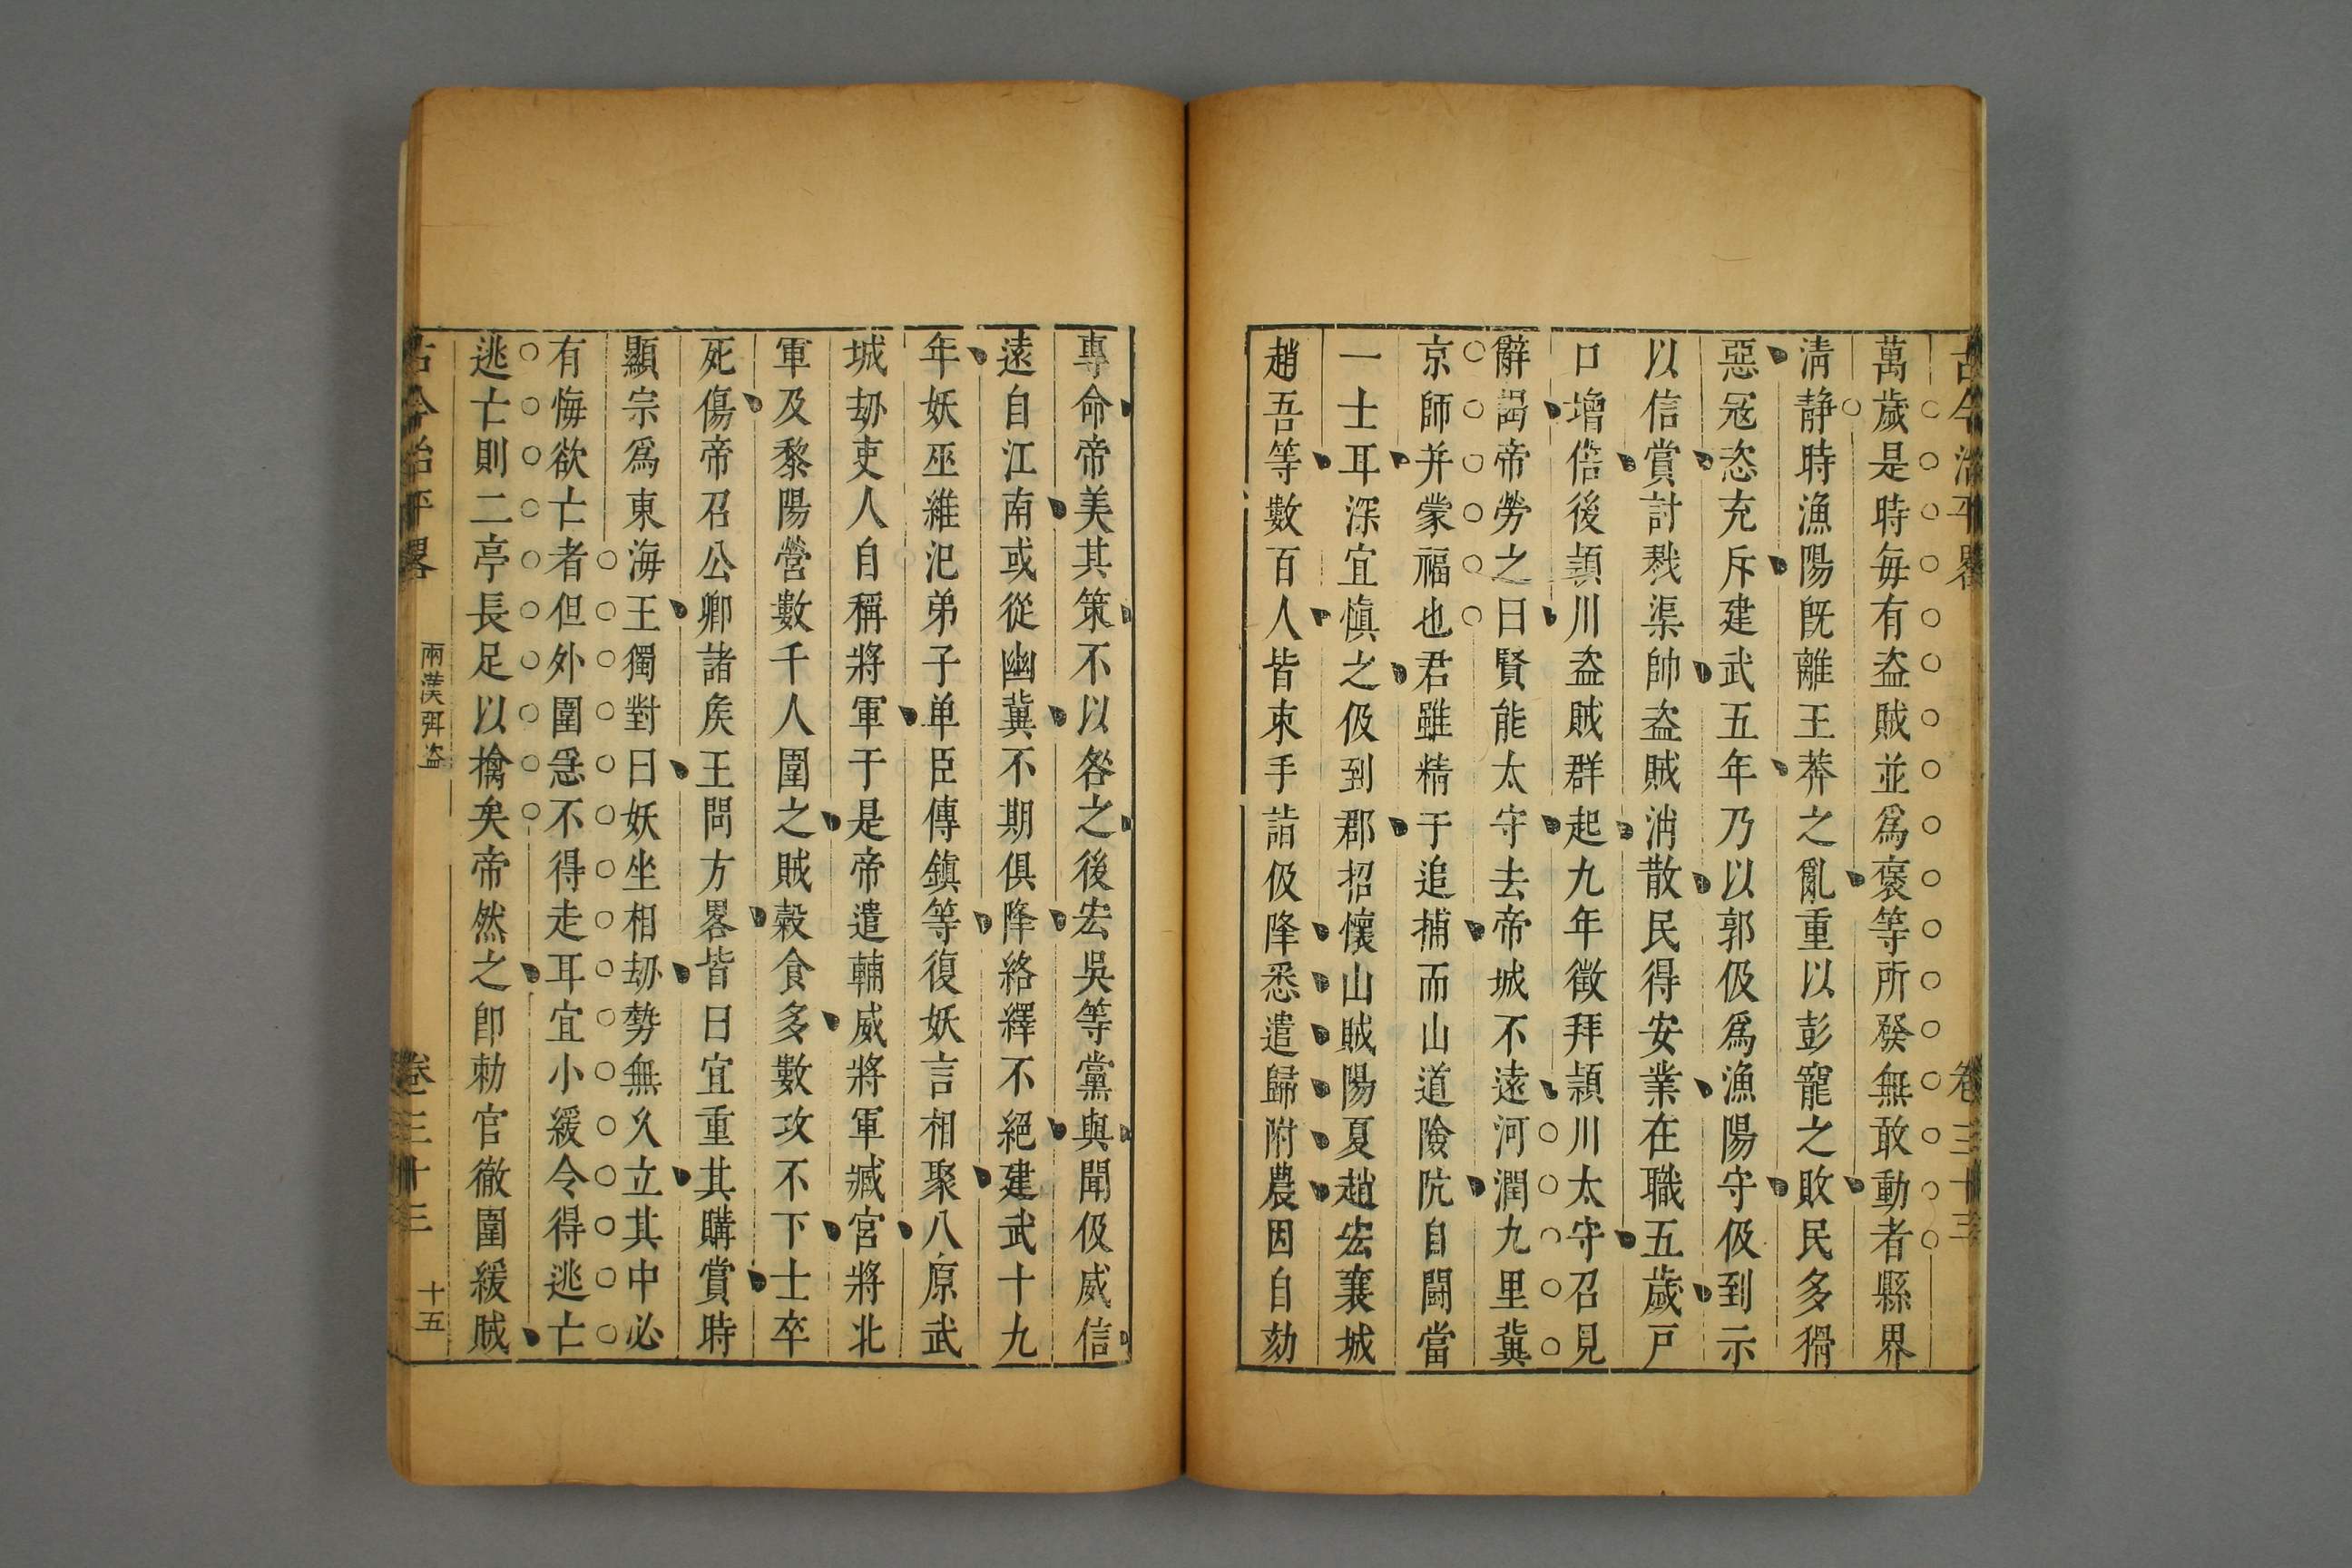 古今治平畧 卷三十三
萬歲是時每有盗賊並爲褒等所發無敢動者縣界
淸静時漁陽旣離王莽之亂重以彭寵之敗民多猾
惡冦恣充斥建武五年乃以郭伋爲漁陽守伋到示
以信賞討戮渠帥盗賊消散民得安業在職五歲戸
口增倍後頴川盗賊群起九年徵拜頴川太守召見
辭謁帝勞之曰賢能太守去帝城不遠河潤九里冀
京師并蒙福也君雖精于追捕而山道險阸自鬪當
一士耳深宜愼之伋到郡招懷山賊陽夏趙宏襄城
趙吾等數百人皆束手詣伋降悉遣歸附農因自劾
專命帝美其策不以咎之後宏吳等黨與聞伋威信
遠自江南或從幽冀不期俱降絡繹不絕建武十九
年妖巫維汜弟子单臣傳鎮等復妖言相聚八原武
城刼吏人自稱將軍于是帝遣輔威將軍臧宮將北
軍及黎陽營數千人圍之賊穀食多數攻不下士卒
死傷帝召公卿諸矦王問方畧皆曰宜重其購賞時
顯宗爲東海王獨對曰妖坐相刼勢無乆立其中必
有悔欲亡者但外圍急不得走耳宜小緩令得逃亡
逃亡則二亭長足以擒矣帝然之卽勅官徹圍緩賊
古今治平畧 兩漢弭盗 卷三十三 十五